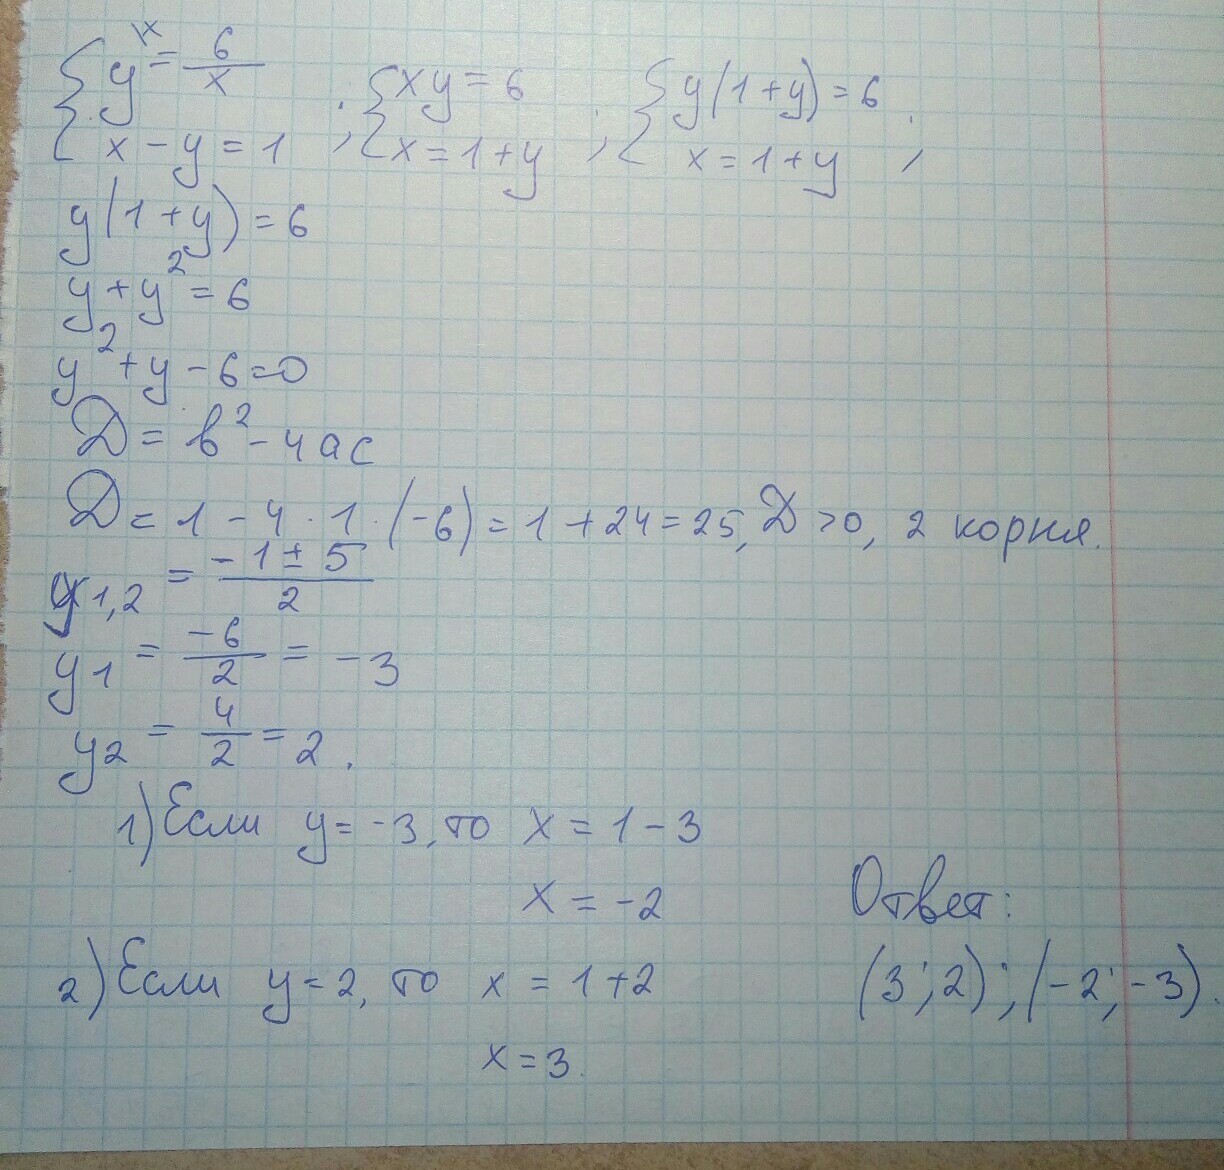 { y = 6/x ; { xy = 6 ; { y(1+y) = 6 ;
x - y = 1 x = 1 + y x = 1 + y
y(1+y) = 6
y + y² = 6
y² + y - 6 = 0
D = b² - 4ac
D = 1 - 4 · 1 · (-6) = 1 + 24 = 25, D > 0, 2 корня.
y1,2 = (-1 ± 5)/2
y1 = -6/2 = -3
y2 = 4/2 = 2.
1) Если y = -3, то x = 1 - 3
x = -2
Ответ:
2) Если y = 2, то x = 1 + 2
(3; 2); (-2; -3).
x = 3.